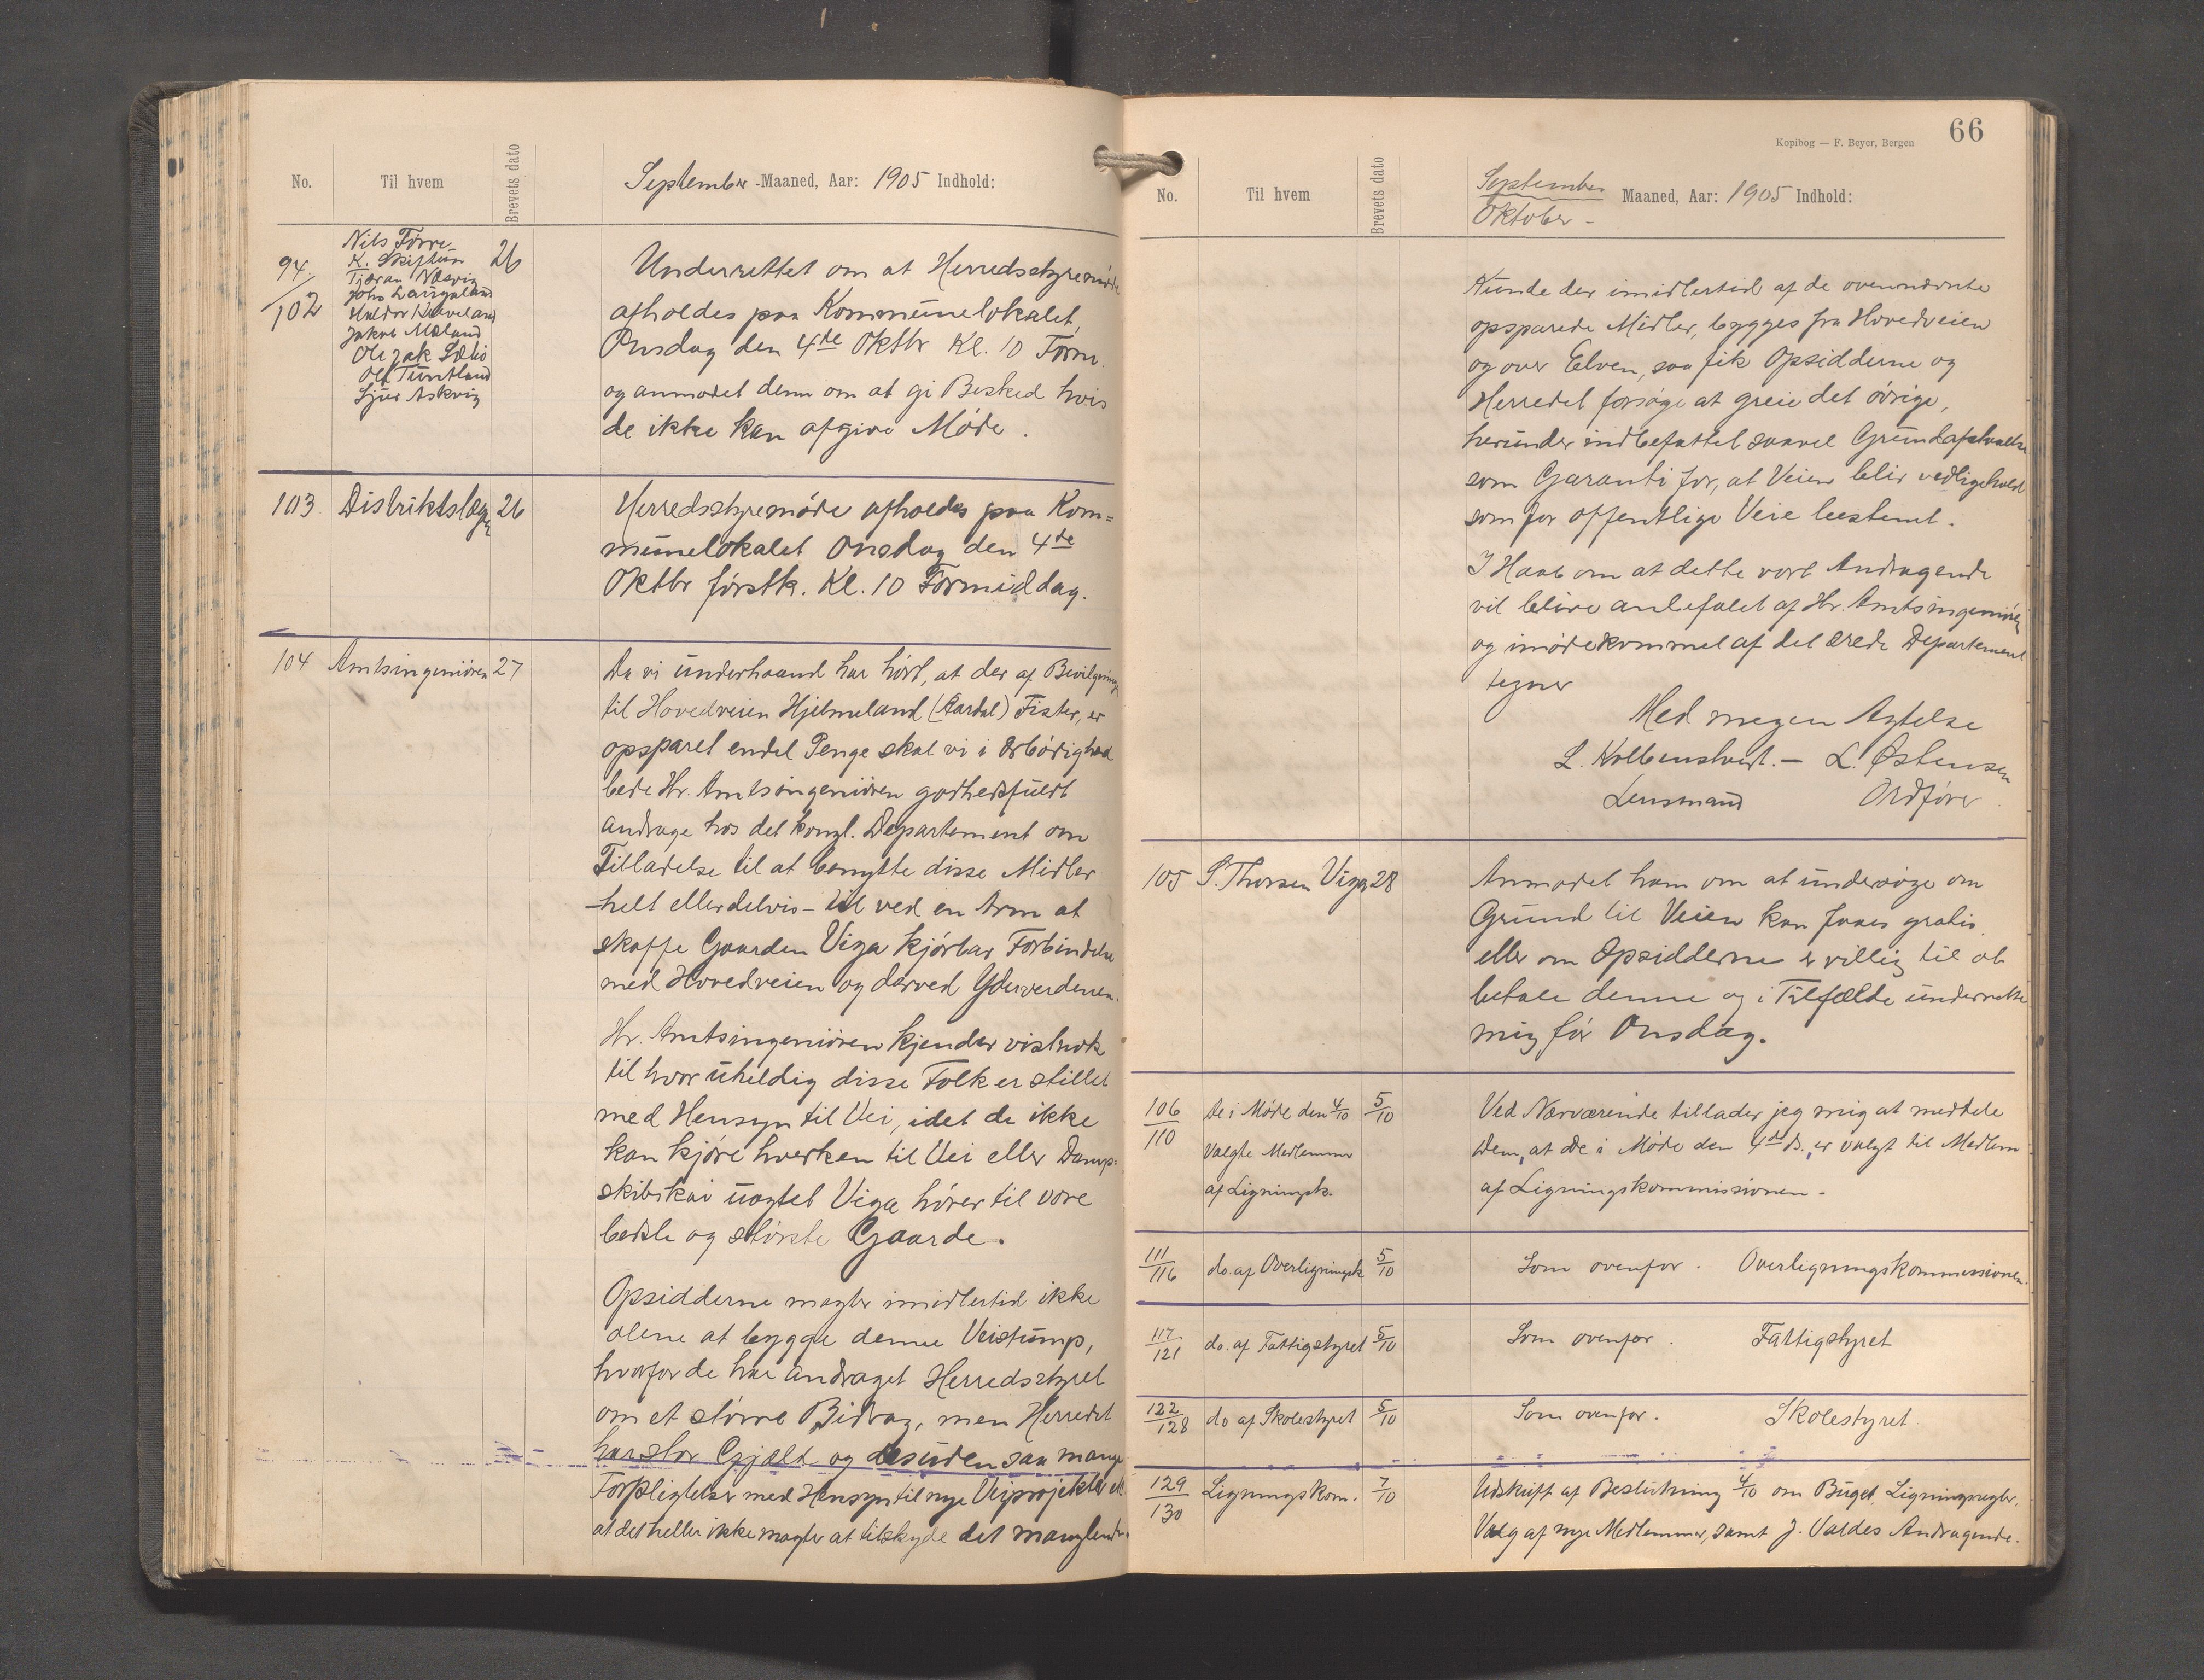 No. Til hvem Brevets dato September -Maaned, Aar: 1905 Indhold:
94/102
Nils Tørre
K. Skiftun
Tjæran Næsvig
Johs Laugaland
Haldor Kleveland
Jakob Mæland
Ole Jak Sæbø
Olf Tuntland
Sjur Askvig
26
Underrettet om at Herredsstyremøde
afholdes paa Kommunelokalet
Onsdag den 4de Oktbr Kl. 10 Form.
og anmodet dem om at gi Besked hvis
de ikke kan afgive Møde.
103 Distriktslægen 26
Herredsstyremøde afholdes paa Kom=
munelokalet Onsdag den 4de
Oktbr førstk. Kl. 10 Formiddag.
104 Amtsingeniøren 27
Da vi underhaand har hørt, at der af Bevilgningen
til Hovedveien Hjelmeland (Aardal) Fister, er
opsparet endel Penge skal vi i Ærbødighed
bede Hr. Amtsingeniøren godhedsfuldt
andrage hos det kongl. Departement om
Tilladelse til at benytte disse Midler
- helt eller delvis - til ved en Arm at
skaffe Gaarden Viga kjørbar Forbindelse
med Hovedveien og derved Yderverdenen.
Hr. Amtsingeniøren kjender vistnok
til hvor uheldig disse Folk er stillet
med Hensyn til Vei, idet de ikke
kan kjøre hverken til Vei eller Damp=
skibskai uagtet Viga hører til vore
bedste og største Gaarde.
Opsidderne magter imidlertid ikke
alene at bygge denne Veistump,
hvorfor de har andraget Herredsstyret
om et større Bidrag, men Herredet
har stor Gjæld og desuden saa mange
Forpligtelser med Hensyn til nye Veiprojekter etc
at det heller ikke magter at tilskyde det manglende.
66
Kopibog — F. Beyer, Bergen
No. Til hvem Brevets dato September Maaned, Aar: 1905 Indhold:
Oktober -
Kunde der imidlertid af de ovennævnte
opsparede Midler, bygges fra Hovedveien
og over Elven, saa fik Opsidderne og
Herredet forsøge at greie det øvrige,
herunder indbefattet saavel Grundafstaaelse
som Garanti for, at Veien blir vedligeholdt
som for offentlige Veie bestemt.
I Haab om at dette vort Andragende
vil blive anbefalet af Hr. Amtsingeniøren
og imødekommet af det ærede Departement
tegner
Med megen Agtelse
L. Kolbenstvedt. — L. Østensen
Lensmand Ordfører
105 S. Thorsen Viga 28
Anmodet ham om at undersøge om
Grund til Veien kan faaes gratis
eller om Opsidderne er villig til at
betale denne og i Tilfælde underrette
mig før Onsdag.
106/110 De i Møde den 4/10 5/10
valgte Medlemmer
af Ligningsk.
Ved Nærværende tillader jeg mig at meddele
Dem, at De i Møde den 4de ds. er valgt til Medlem
af Ligningskommissionen.
111/116 do. af Overligningsk 5/10 Som ovenfor. Overligningskommissionen.
117/121 do. af Fattigstyret 5/10 Som ovenfor. Fattigstyret
122/128 do af Skolestyret 5/10 Som ovenfor. Skolestyret.
129/130 Ligningskom. 7/10 Udskrift af Beslutning 4/10 om Buget, Ligningsregler,
Valg af nye Medlemmer, samt J. Valdes Andragende.